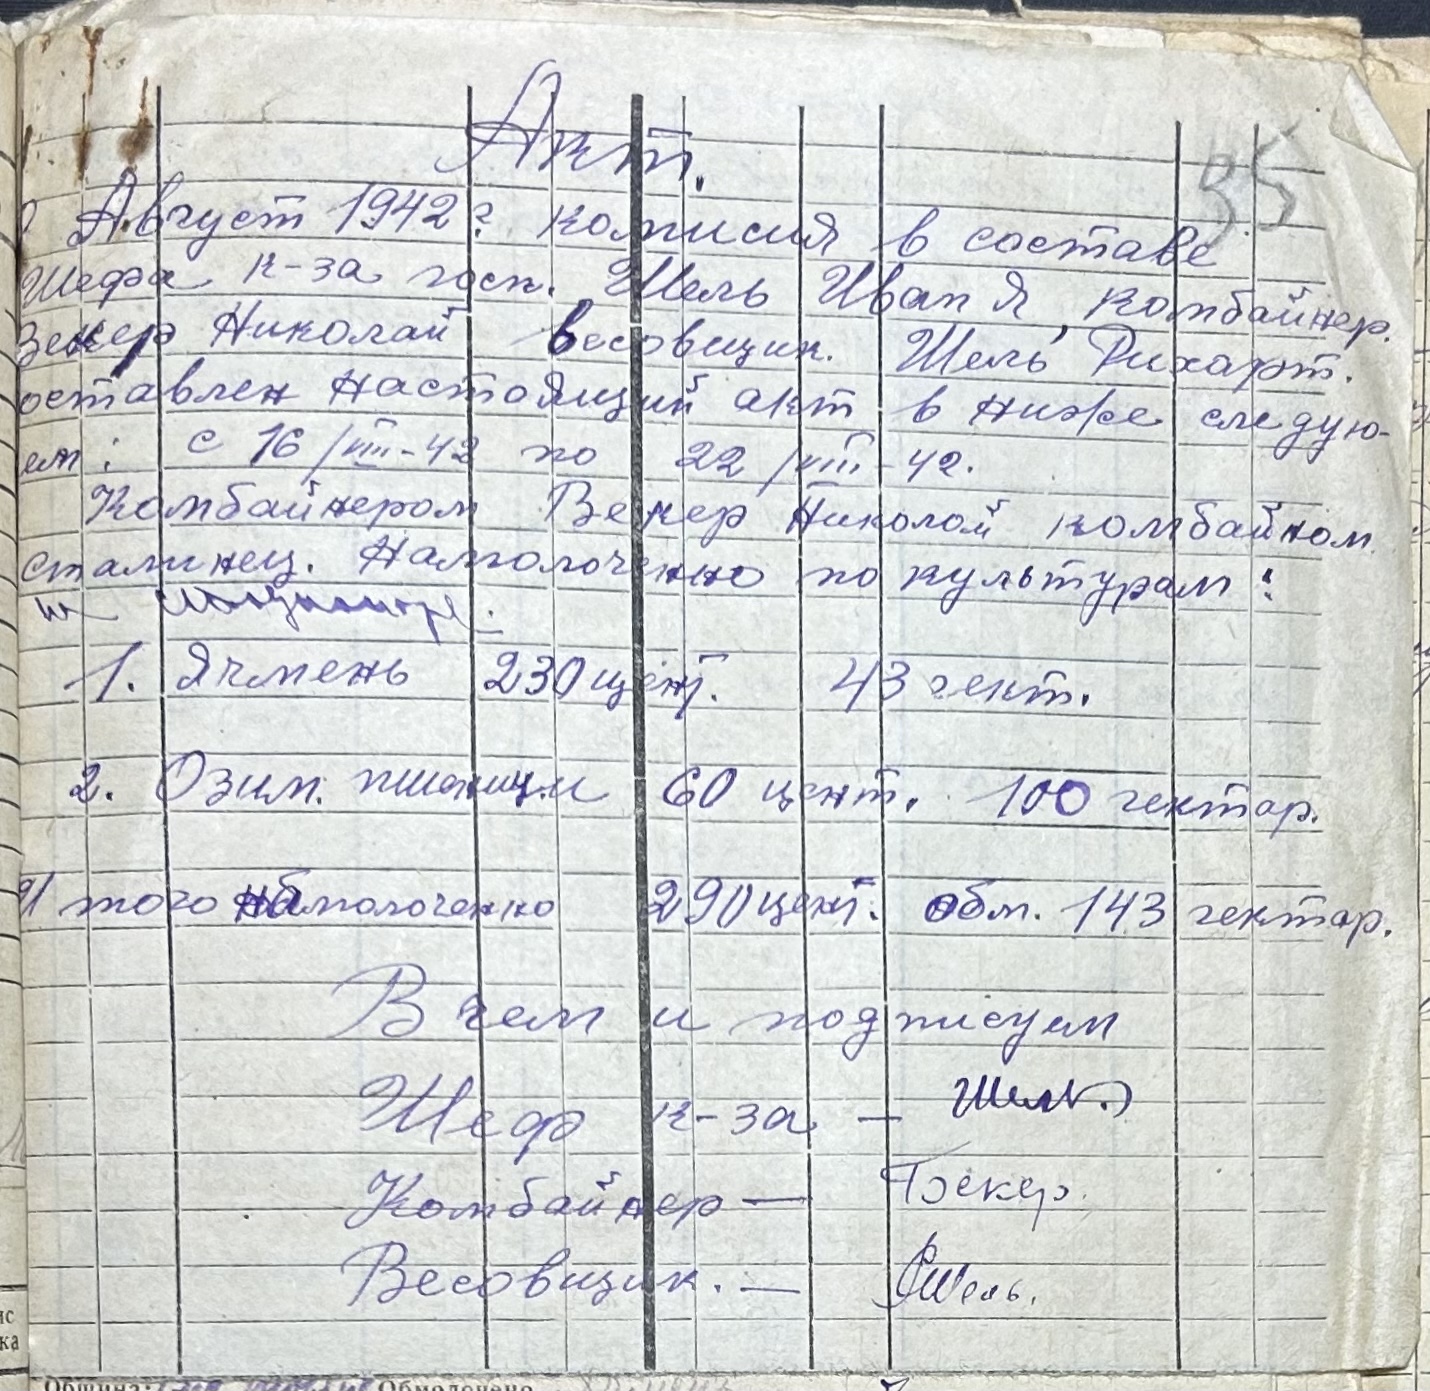 Акт.
35
Август 1942 г. комисия в составе
Шефа к-за госп. Шель Иван Я комбайнер.
Векер Николай весовщик. Шель Рихарт.
оставлен настоящий акт в ниже следую-
ем: с 16/VIII-42 по 22/VIII-42.
Комбайнером Векер Николай комбайном
сталинец. Намолоченно по культурам:
1. Ячмень 230 цент. 43 гект.
2. Озим. пшеницы 60 цент. 100 гектар.
Итого намолоченно 290 цент. обм. 143 гектар.
В чем и подписуем
Шеф к-за — Шель
Комбайнер — Бекер.
Весовщик. — РШель.
ис
ка
Община: Обмолочено